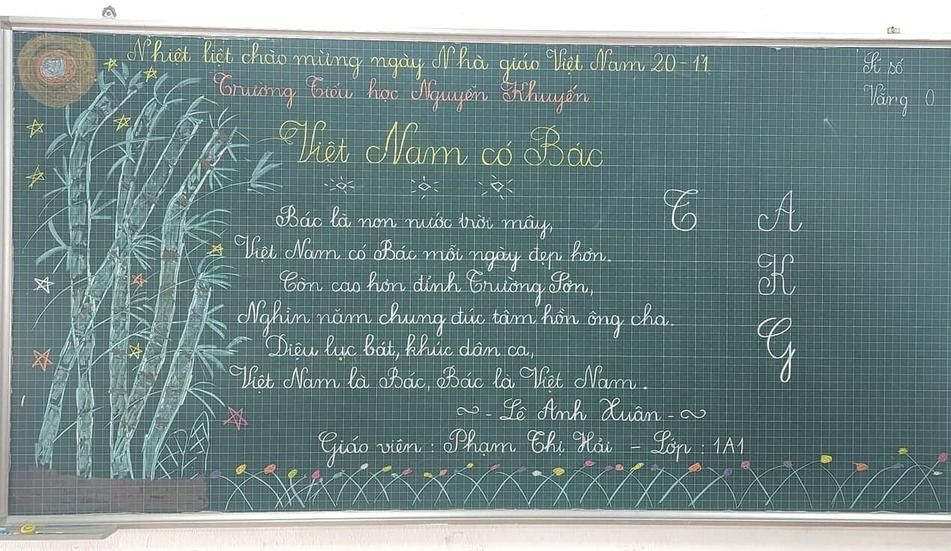 Nhiệt liệt chào mừng ngày Nhà giáo Việt Nam 20-11
Trường Tiểu học Nguyễn Khuyến
Sĩ số
Vắng 0
Việt Nam có Bác
Bác là non nước trời mây,
Việt Nam có Bác mỗi ngày đẹp hơn.
Còn cao hơn đỉnh Trường Sơn,
Nghìn năm chung đúc tâm hồn ông cha.
Điệu lục bát, khúc dân ca,
Việt Nam là Bác, Bác là Việt Nam.
~ - Lê Anh Xuân - ~
Giáo viên : Phạm Thị Hải - Lớp : 1A1
T A
K
G